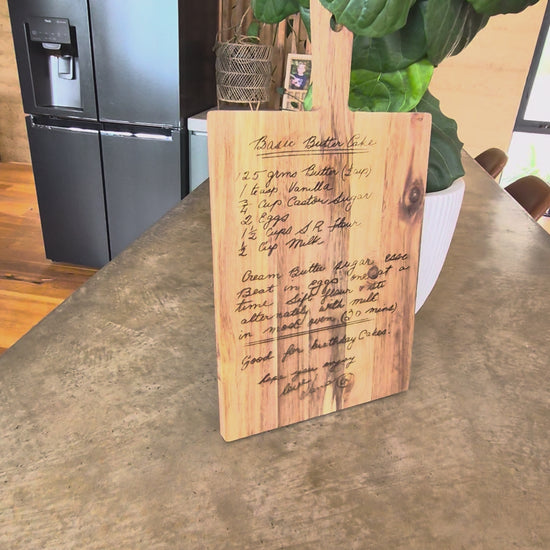 Basic Butter Cake
125 grms Butter (½ cup)
1 teasp Vanilla
¾ cup Castor Sugar
2 Eggs
1½ Cups S R Flour
½ Cup Milk
Cream Butter Sugar
Beat in eggs one at a
time Sift flour +
alternately with milk
in mod oven (30 mins)
Good for birthday Cakes.
hope you enjoy
love